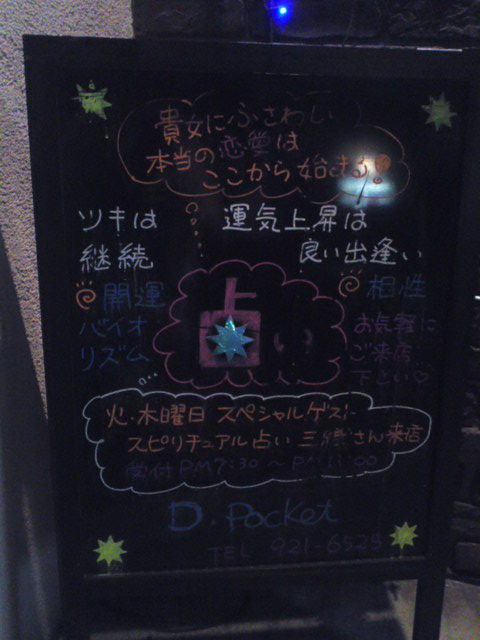 貴女にふさわしい
本当の恋愛は
ここから始まる!
ツキは
継続
運気上昇は
良い出逢い
開運
バイオ
リズム
占い
相性
お気軽に
ご来店
下さい♡
火・木曜日 スペシャルゲスト
スピリチュアル占い 三 さん来店
受付PM7:30〜PM11:00
D. Pocket
TEL 921-6525